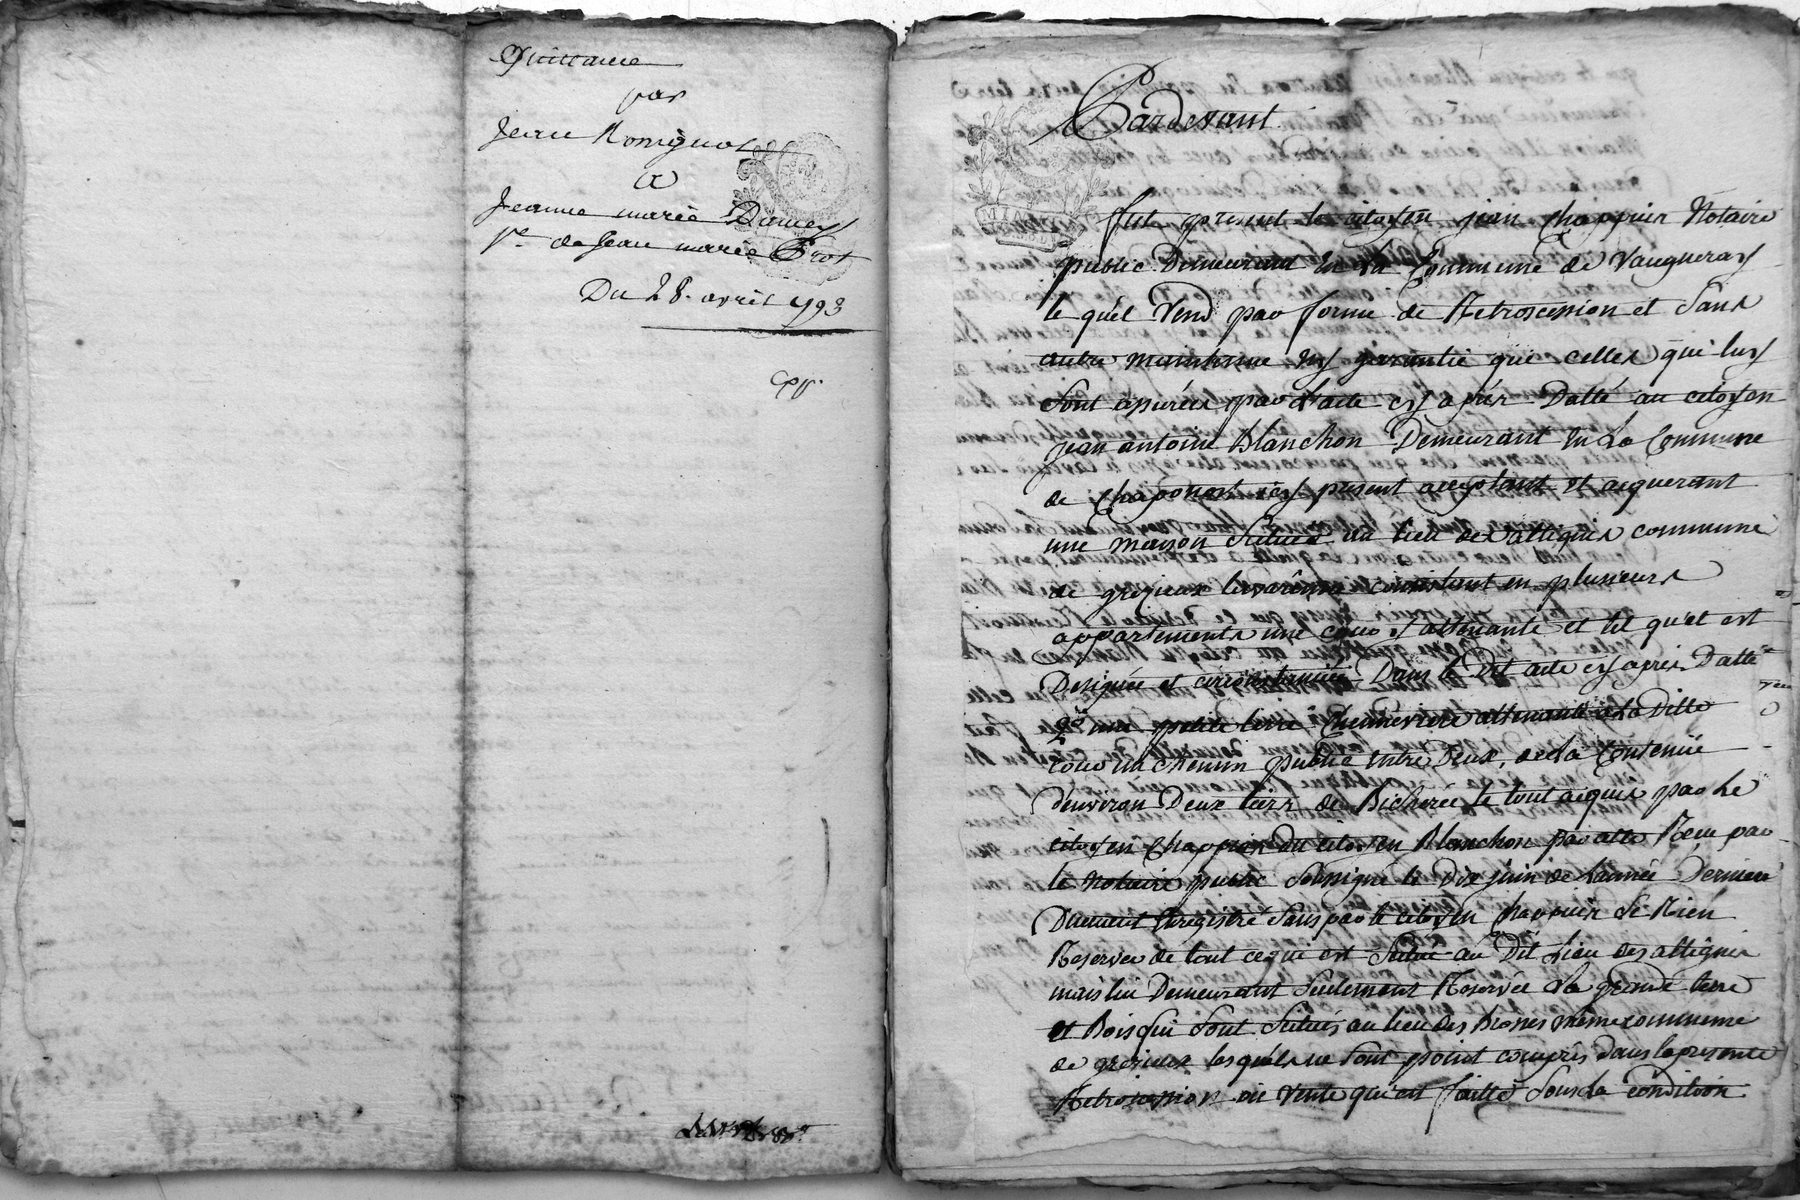 Quittance
par
Jean
a
Jeanne marie
Ve. de Jean marie Brot
Du 28. avril 1793
Pardevant
fut present le citoyen jean Chappuir Notaire
public Demeurant En La Commune de Vaugneray
le quel Vend par forme de Retrosession et Sans
autre maintenue ny garantie que celles qui luy
Sont par L'acte cy après Datté au citoyen
jean antoine Blanchon Demeurant En La Commune
de Chaponost icy present acceptant et acquerant
une maison Située au lieu des attignies commune
de grezieux consistant en plusieurs
appartements une cour y attenante et tel qu'et est
Designée et Dans le Dit acte cy après Datté
2° une petite terre Chenneviere attenante à La Ditte
cour un chemin public entre Deux, de La Contenüe
d'environ Deux tiers de Bicherée Le tout acquis par Le
citoyen Chappuir du citoyen Blanchon par acte Reçu par
le Notaire public Soussigné le Dix juin de L'année Derniere
Duement Enregistré Sans par le citoyen Chappuir Se Rien
Reserver de tout cequi est Situé au Dit Lieu des attignies
mais lui Demeurant Seulement Reservée La grande terre
et Bois qui Sont Situés au lieu des Brosses même commune
de grezieux lesquels ne Sont point compris dans la presente
Retrosession ou vente qui est faitte Sous La condition